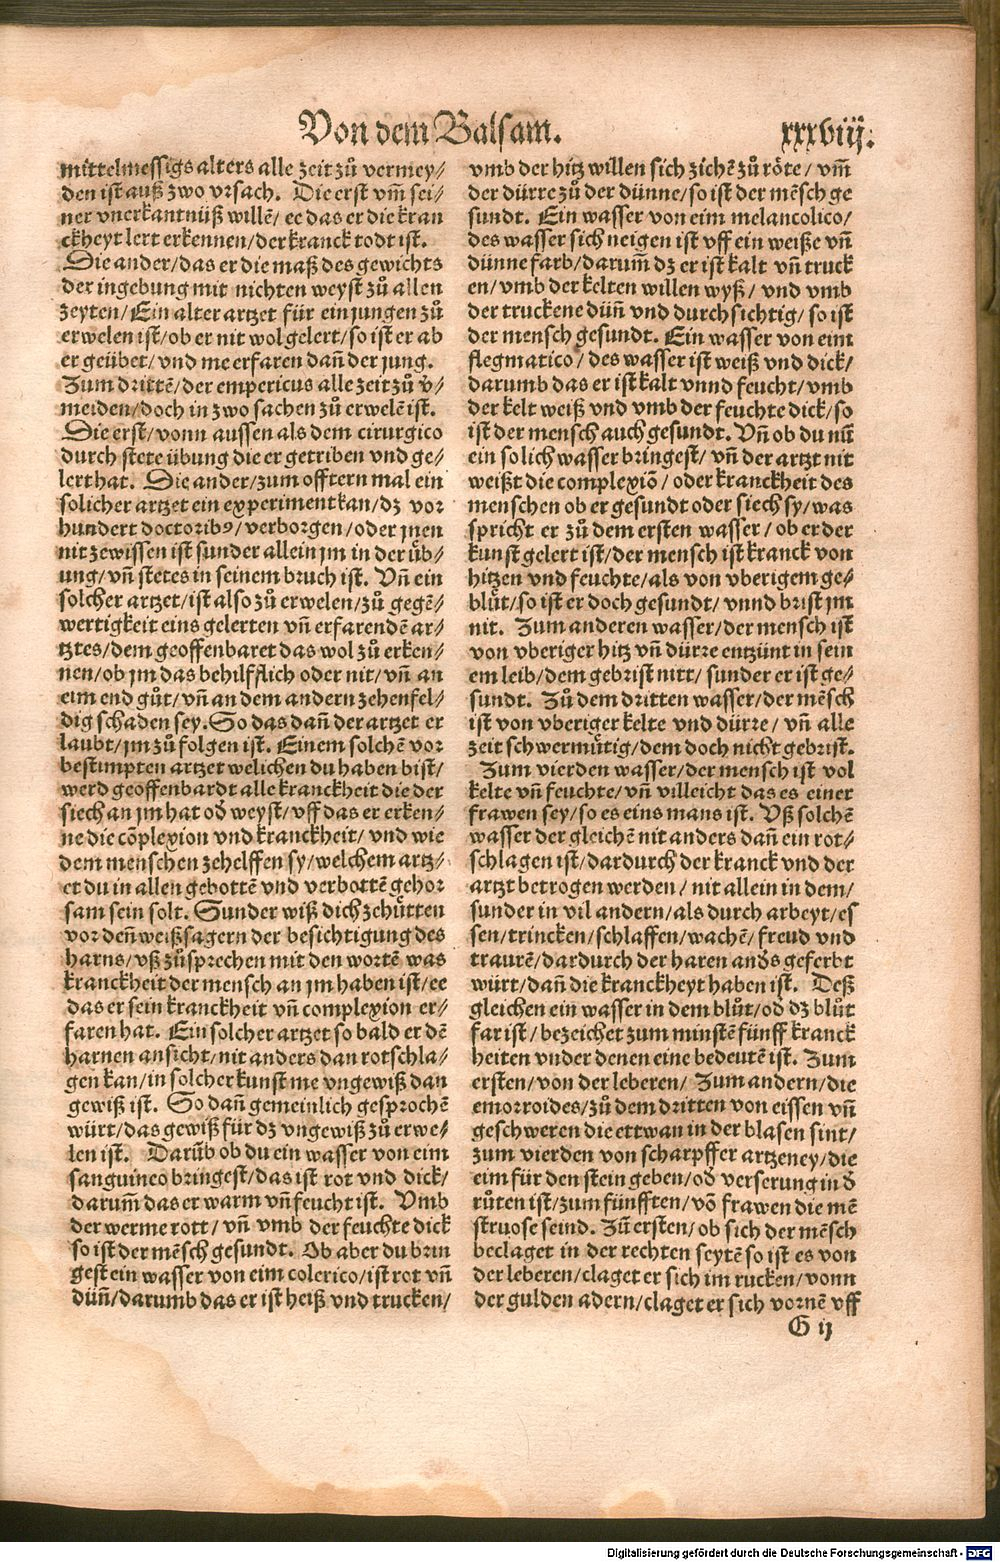 Von dem Balsam.
xxxviij.
mittelmessigs alters alle zeit zů vermey⸗
den ist auß zwo vrsach. Die erst vm̃ sei⸗
ner vnerkantnüß willẽ/ ee das er die kran
ckheyt lert erkennen/der kranck todt ist.
Die ander/das er die maß des gewichts
der ingebung mit nichten weyst zů allen
zeyten/Ein alter artzet für ein jungen zů
erwelen ist/ob er nit wol gelert/so ist er ab
er geübet/vnd me erfaren dañ der jung.
Zum drittẽ/der empericus alle zeit zů ṽ⸗
meiden/doch in zwo sachen zů erwelẽ ist.
Die erst/vonn aussen als dem cirurgico
durch stete übung die er getriben vnd ge⸗
lert hat. Die ander/zum offtern mal ein
solicher artzet ein experiment kan/dz vor
hundert doctoribꝰ/verborgen/oder jnen
nit zewissen ist sunder allein jm in der üb⸗
ung/vñ stetes in seinem bruch ist. Vñ ein
solcher artzet/ist also zů erwelen/zů gegẽ⸗
wertigkeit eins gelerten vñ erfarendẽ ar⸗
tztes/dem geoffenbaret das wol zů erken⸗
nen/ob jm das behilfflich oder nit/vñ an
eim end gůt/vñ an dem andern zehenfel⸗
dig schaden sey. So das dañ der artzet er
laubt/jm zů folgen ist. Einem solchẽ vor
bestimpten artzet welichen du haben bist/
werd geoffenbardt alle kranckheit die der
siech an jm hat oď weyst/vff das er erken⸗
ne die cõplexion vnd kranckheit/vnd wie
dem menschen zehelffen sy/welchem artz⸗
et du in allen gebottẽ vnd verbottẽ gehor
sam sein solt. Sunder wiß dich zehütten
vor deñ weißsagern der besichtigung des
harns/vß zůsprechen mit den wortẽ was
kranckheit der mensch an jm haben ist/ee
das er sein kranckheit vñ complexion er⸗
faren hat. Ein solcher artzet so bald er dẽ
harnen ansicht/nit anders dan rotschla⸗
gen kan/in solcher kunst me vngewiß dan
gewiß ist. So dañ gemeinlich gesprochẽ
würt/das gewiß für dz vngewiß zů erwe⸗
len ist. Darüb ob du ein wasser von eim
sanguineo bringest/das ist rot vnd dick/
darum̃ das er warm vñ feucht ist. Vmb
der werme rott/ vñ vmb der feuchte dick
so ist der mẽsch gesundt. Ob aber du brin
gest ein wasser von eim colerico/ist rot vñ
düñ/darumb das er ist heiß vnd trucken/
vmb der hitz willen sich zichẽ zů röte/ vm̃
der dürre zů der dünne/so ist der mẽsch ge
sundt. Ein wasser von eim melancolico/
des wasser sich neigen ist vff ein weiße vñ
dünne farb/darum̃ dz er ist kalt vñ truck
en/vmb der kelten willen wyß/ vnd vmb
der truckene düñ vnd durchsichtig/ so ist
der mensch gesundt. Ein wasser von eim
flegmatico/ des wasser ist weiß vnd dick/
darumb das er ist kalt vnnd feucht/vmb
der kelt weiß vnd vmb der feuchte dick/so
ist der mensch auch gesundt. Vñ ob du nũ
ein solich wasser bringest/ vñ der artzt nit
weißt die complexiõ/ oder kranckheit des
menschen ob er gesundt oder siech sy/was
spricht er zů dem ersten wasser/ ob er der
kunst gelert ist/der mensch ist kranck von
hitzen vnd feuchte/als von vberigem ge⸗
blůt/so ist er doch gesundt/ vnnd brist jm
nit. Zum anderen wasser/der mensch ist
von vberiger hitz vñ dürre entzünt in sein
em leib/dem gebrist nitt/ sunder er ist ge⸗
sundt. Zů dem dritten wasser/der mẽsch
ist von vberiger kelte vnd dürre/ vñ alle
zeit schwermůtig/dem doch nicht gebrist.
Zum vierden wasser/der mensch ist vol
kelte vñ feuchte/vñ villeicht das es einer
frawen sey/so es eins mans ist. Vß solchẽ
wasser der gleichẽ nit anders dañ ein rot⸗
schlagen ist/dardurch der kranck vnd der
artzt betrogen werden/ nit allein in dem/
sunder in vil andern/als durch arbeyt/es
sen/trincken/schlaffen/wachẽ/ freud vnd
traurẽ/dardurch der haren anďs geferbt
würt/dañ die kranckheyt haben ist. Deß
gleichen ein wasser in dem blůt/oď dz blůt
far ist/ bezeichet zum minstẽ fünff kranck
heiten vnder denen eine bedeutẽ ist. Zum
ersten/von der leberen/ Zum andern/die
emorroides/zů dem dritten von eissen vñ
geschweren die ettwan in der blasen sint/
zum vierden von scharpffer artzeney/die
eim für den stein geben/oď verserung in ď
růten ist/zum fünfften/võ frawen die mẽ
struose seind. Zů ersten/ob sich der mẽsch
beclaget in der rechten seytẽ so ist es von
der leberen/claget er sich im rucken/vonn
der gulden adern/claget er sich vornẽ vff
G ij
Digitalisierung gefördert durch die Deutsche Forschungsgemeinschaft - DFG